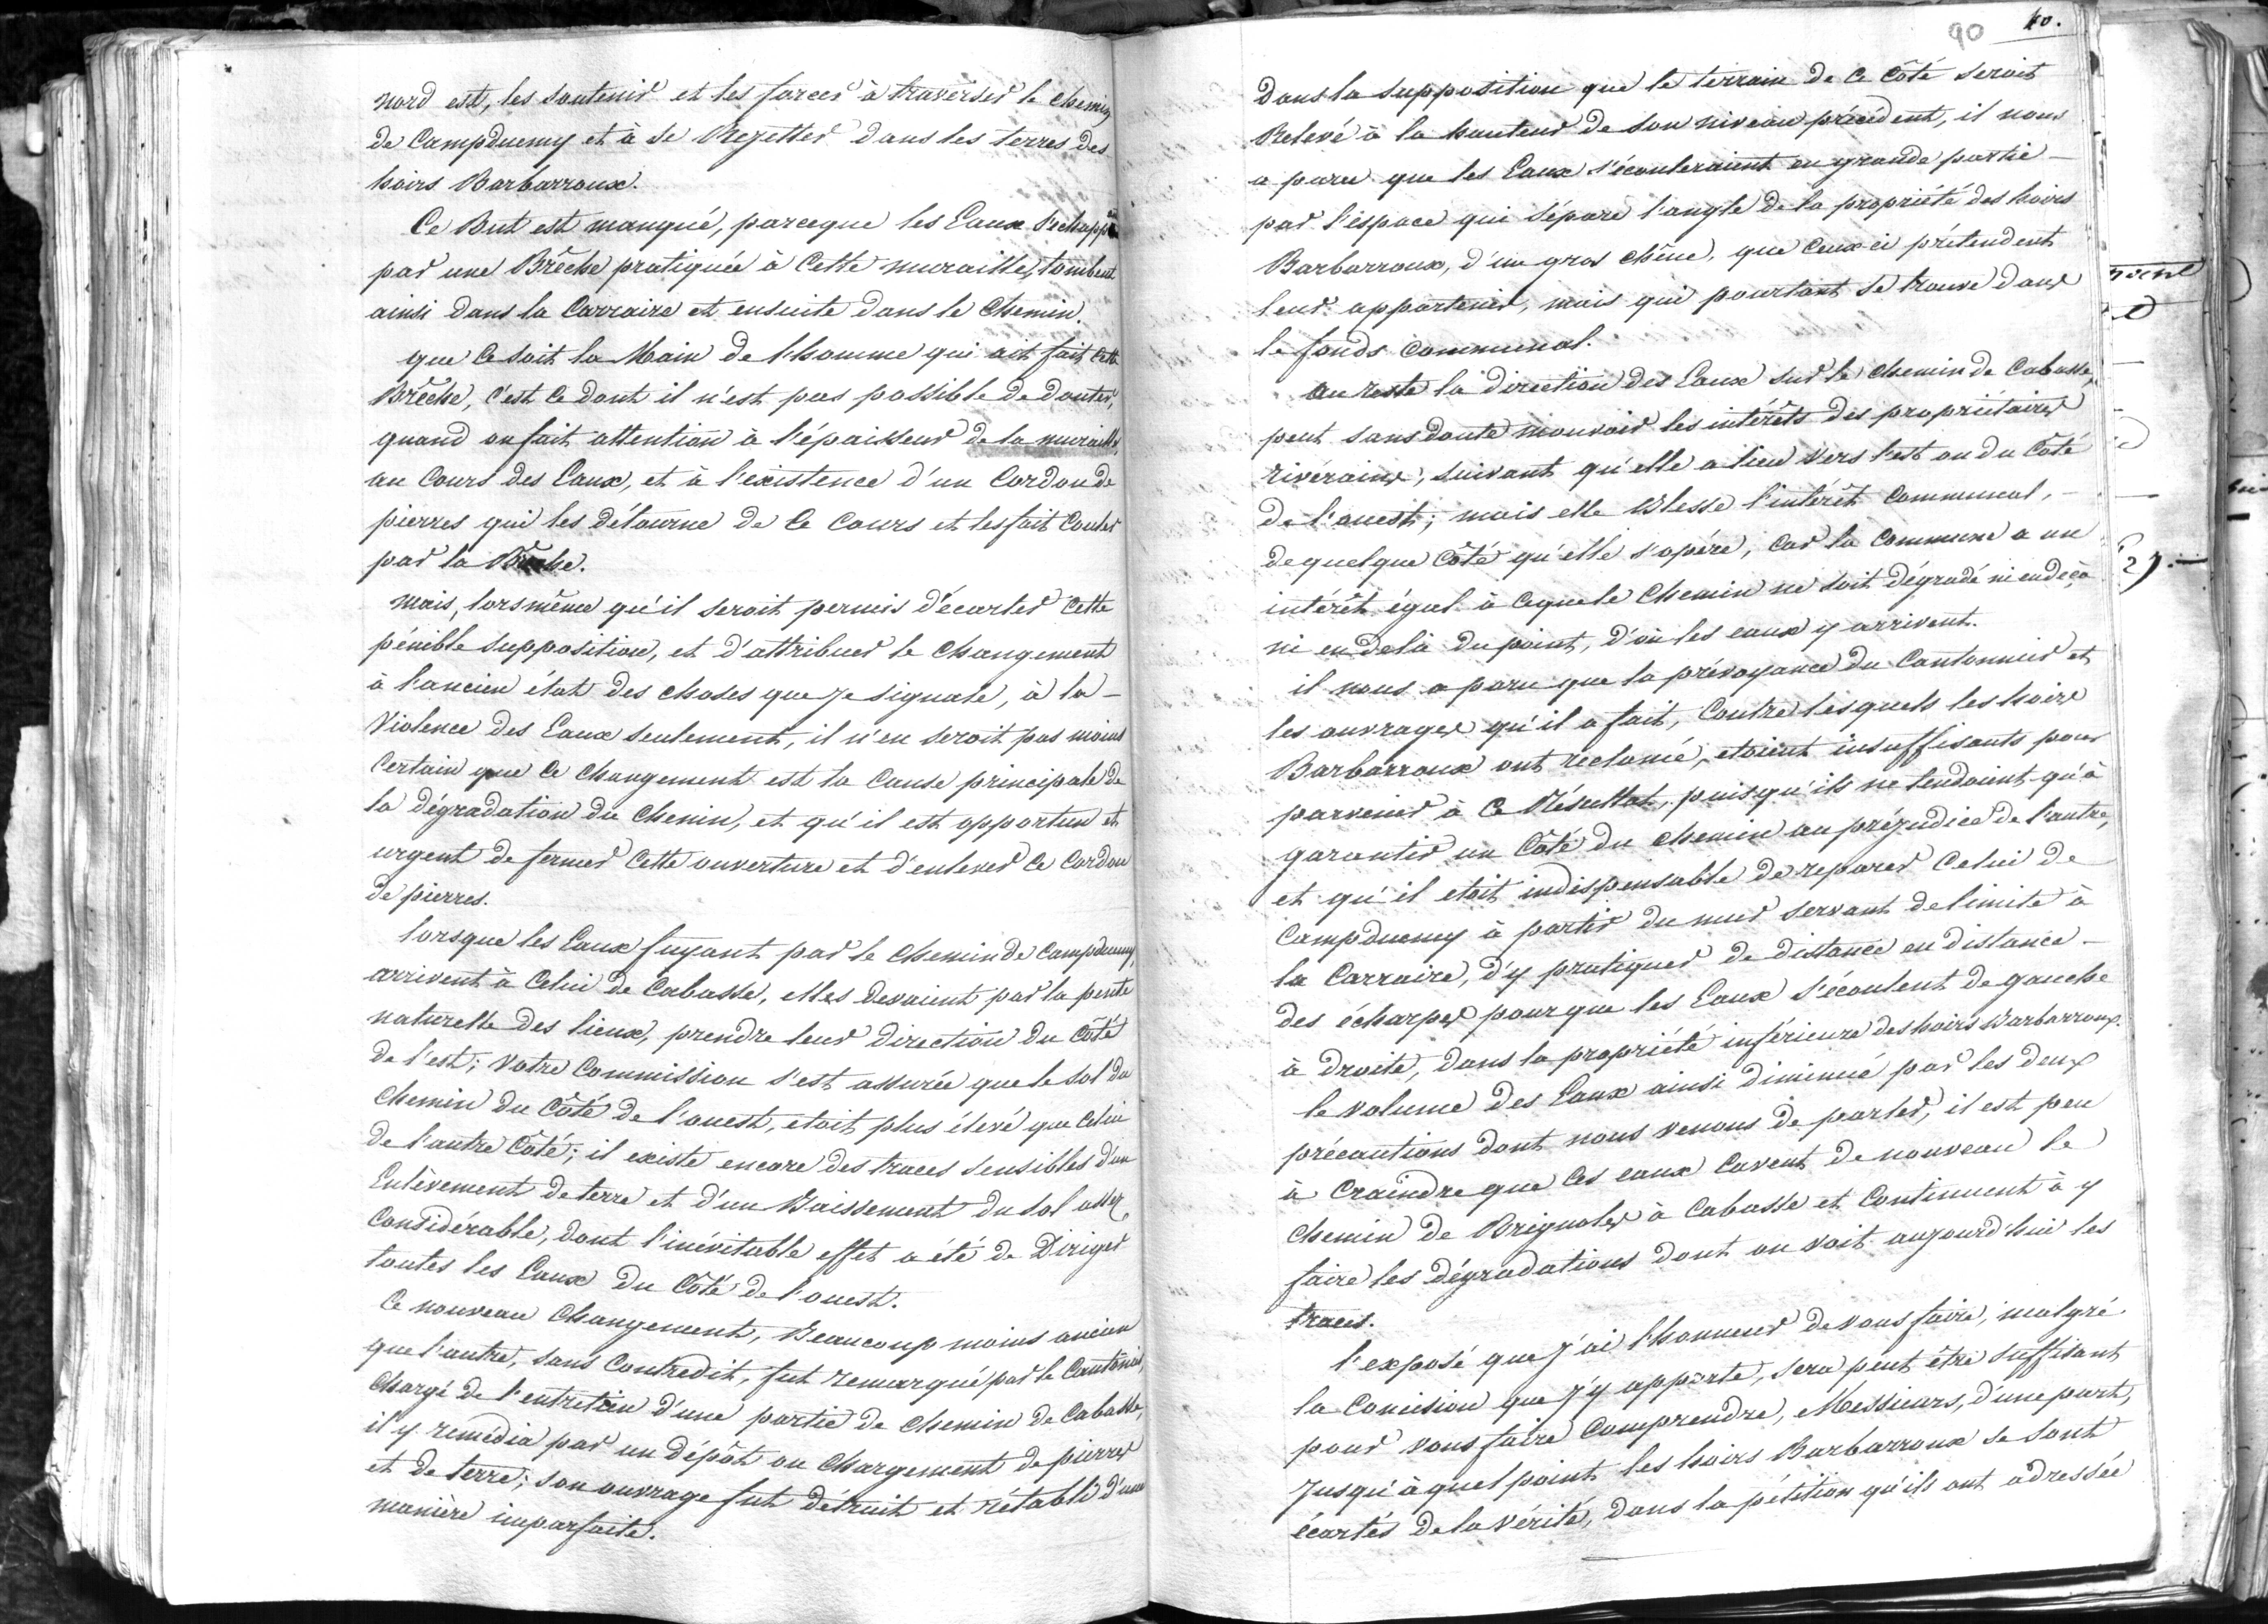 nord est, les soutenir et les forcer à traverser le chemin
de Campduemy et à se Rejetter dans les terres des
hoirs Barbarroux.
Ce But est manqué, parceque les Eaux s'échappant
par une Brêche pratiquée à Cette muraille, tombent
ainsi dans la Carraire et ensuite dans le Chemin.
que Ce soit la Main de l'homme qui ait fait Cette
Brêche, C'est Ce dont il n'est pas possible de douter,
quand on fait attention à l'épaisseur de la muraille,
au Cours des Eaux, et à l'existence d'un Cordon de
pierres qui les détourne de Ce Cours et les fait Couler
par la Brêche.
mais, lors même qu'il seroit permis d'écarter Cette
pénible supposition, et d'attribuer le Changement
à l'ancien état des choses que je signale, à la
Violence des Eaux seulement, il n'en seroit pas moins
Certain que Ce Changement est la Cause principale de
la dégradation du Chemin, et qu'il est opportun et
urgent de fermer Cette ouverture et d'enlever Ce Cordon
de pierres.
lorsque les Eaux fuyant par le Chemin de Campduemy,
arrivent à Celui de Cabasse, elles devaient par la pente
naturelle des lieux, prendre leur direction du Côté
de l'est; Votre Commission s'est assurée que le sol du
Chemin du Côté de l'ouest, etoit plus élevé que Celui
de l'autre Côté; il existe encore des traces sensibles d'un
Enlèvement de terre et d'un Baissement du sol assez
Considérable, dont l'inévitable effet a été de Diriger
toutes les Eaux du Côté de l'ouest.
Ce nouveau Changement, Beaucoup moins ancien
que l'autre, sans Contredit, fut remarqué par le Cantonier,
Chargé de l'entretien d'une partie de Chemin de Cabasse,
il y remédia par un dépôt ou Chargement de pierres
et de terre; son ouvrage fut détruit et rétabli d'une
manière imparfaite.
90 40.
Dans la supposition que le terrain de Ce Côté seroit
Relevé à la hauteur de son niveau précédent, il nous
a paru que les Eaux s'écouleraient en grande partie
par l'espace qui sépare l'angle de la propriété des hoirs
Barbarroux, d'un gros chêne, que Ceux ci prétendent
leur appartenir, mais qui pourtant se trouve dans
le fonds Communal.
au reste la direction des Eaux sur le Chemin de Cabasse,
peut sans doute mouvoir les intérêts des propriétaires
rivérains, suivant qu'elle a lieu vers l'est ou du Côté
de l'ouest; mais elle Blesse l'intérêt Communal,
de quelque Côté qu'elle s'opère, Car la Commune a un
intérêt égal à Ceque le Chemin ne soit dégradé ni en deçà
ni en delà du point, d'où les eaux y arrivent.
il nous a paru que la prévoyance du Cantonnier et
les ouvrages qu'il a fait, Contre lesquels les hoirs
Barbarroux ont réclamé, etoient insuffisants pour
parvenir à Ce Résultat, puisqu'ils ne tendoient qu'à
garantir un Côté du Chemin au préjudice de l'autre,
et qu'il etoit indispensable de reparer Celui de
Campduemy à partir du mur servant de limite à
la Carraire, d'y pratiquer de distance en distance
des écharpes pour que les Eaux s'écoulent de gauche
à droite, dans la propriété inférieure des hoirs Barbarroux.
le volume des Eaux ainsi diminué par les deux
précautions dont nous venons de parler, il est peu
à Craindre que Ces eaux Cavent de nouveau le
Chemin de Brignoles à Cabasse et Continuent à y
faire les dégradations dont on voit aujourd'hui les
traces.
l'exposé que j'ai l'honneur de vous faire, malgré
la Concision que j'y apporte, sera peut être suffisant
pour vous faire Comprendre, Messieurs, d'une part,
jusqu'à quel point les hoirs Barbarroux se sont
écartés de la vérité, dans la pétition qu'ils ont adressée